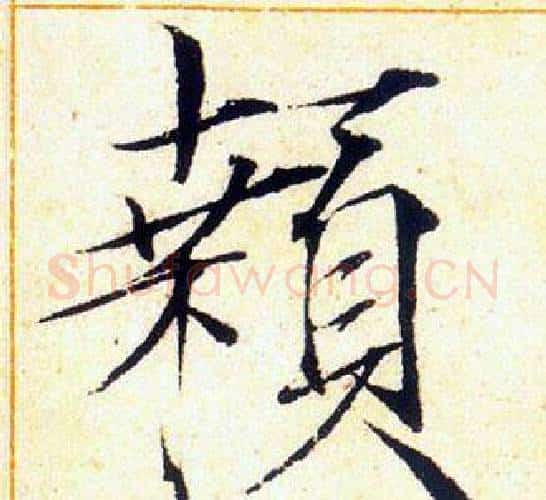 顙
Shufawang.CN